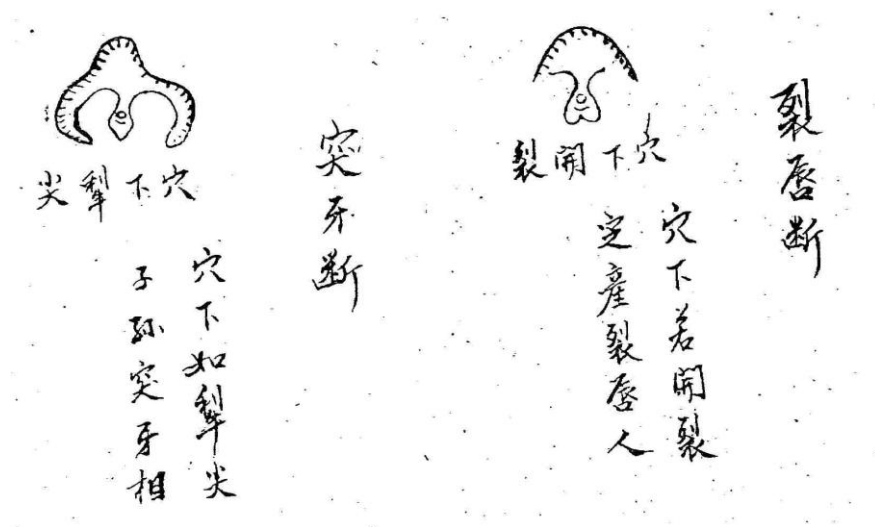 裂唇断
穴下開裂
穴下若開裂
定產裂唇人
突牙断
穴下犁尖
穴下如犁尖
子孫突牙相